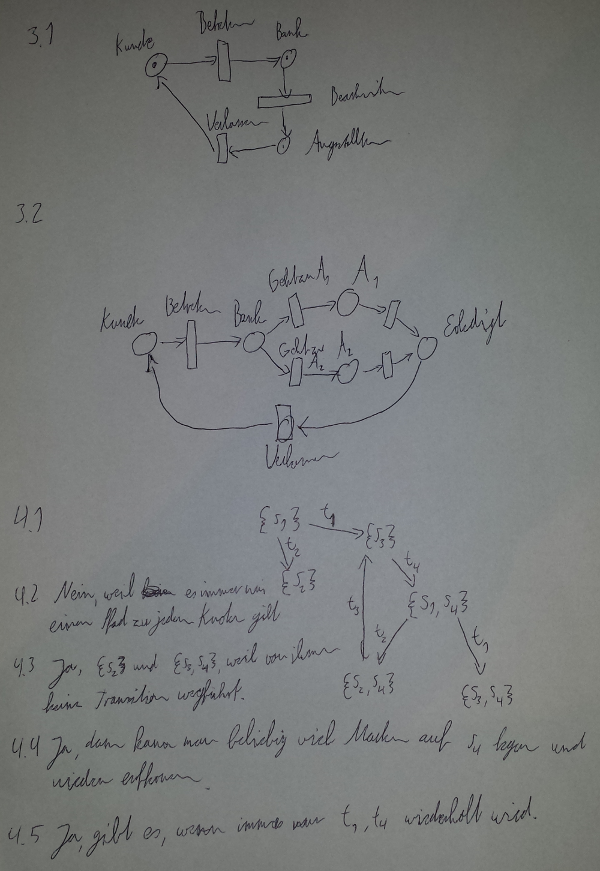 3.1
Kunde Betreten Bank
Bearbeiten
Verlassen
Angestellten
3.2
Geht zu A₁ A₁
Kunde Betreten Bank Erledigt
Geht zu A₂ A₂
Verlassen
4.1
{S₁} t₁ {S₃}
t₂ t₄
{S₂}
4.2 Nein, weil es immer nur
einen Pfad zu jedem Knoten gibt
t₃ {S₁, S₄}
t₂ t₁
4.3 Ja, {S₂} und {S₃, S₄}, weil von ihnen
keine Transition wegführt.
{S₂, S₄} {S₃, S₄}
4.4 Ja, dann kann man beliebig viel Marken auf S₄ legen und
wieder entfernen.
4.5 Ja, gibt es, wenn immer nur t₁, t₄ wiederholt wird.